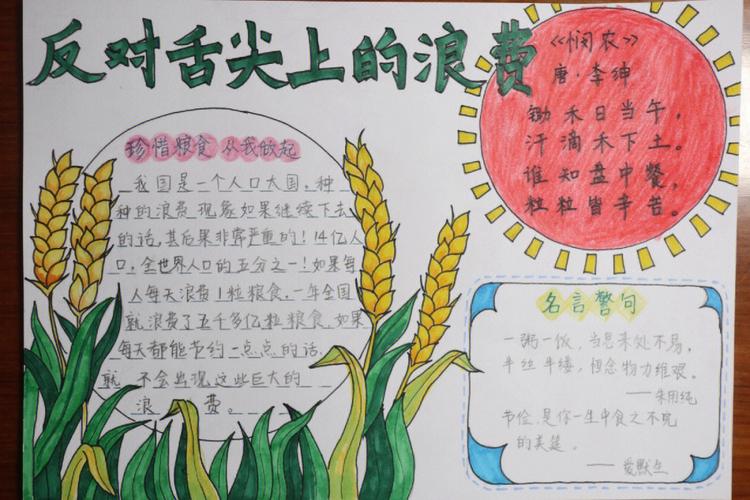 反对舌尖上的浪费
珍惜粮食 从我做起
我国是一个人口大国，种
种的浪费现象如果继续下去
的话，其后果非常严重的！14亿人
口，全世界人口的五分之一！如果每
人每天浪费1粒粮食，一年全国
就浪费了五千多亿粒粮食，如果
每天都能节约一点点的话，
就不会出现这些巨大的
浪费。
《悯农》
唐·李绅
锄禾日当午，
汗滴禾下土。
谁知盘中餐，
粒粒皆辛苦。
名言警句
一粥一饭，当思来处不易，
半丝半缕，恒念物力维艰。
——朱用纯
节俭，是你一生中食之不完
的美筵。
——爱默生